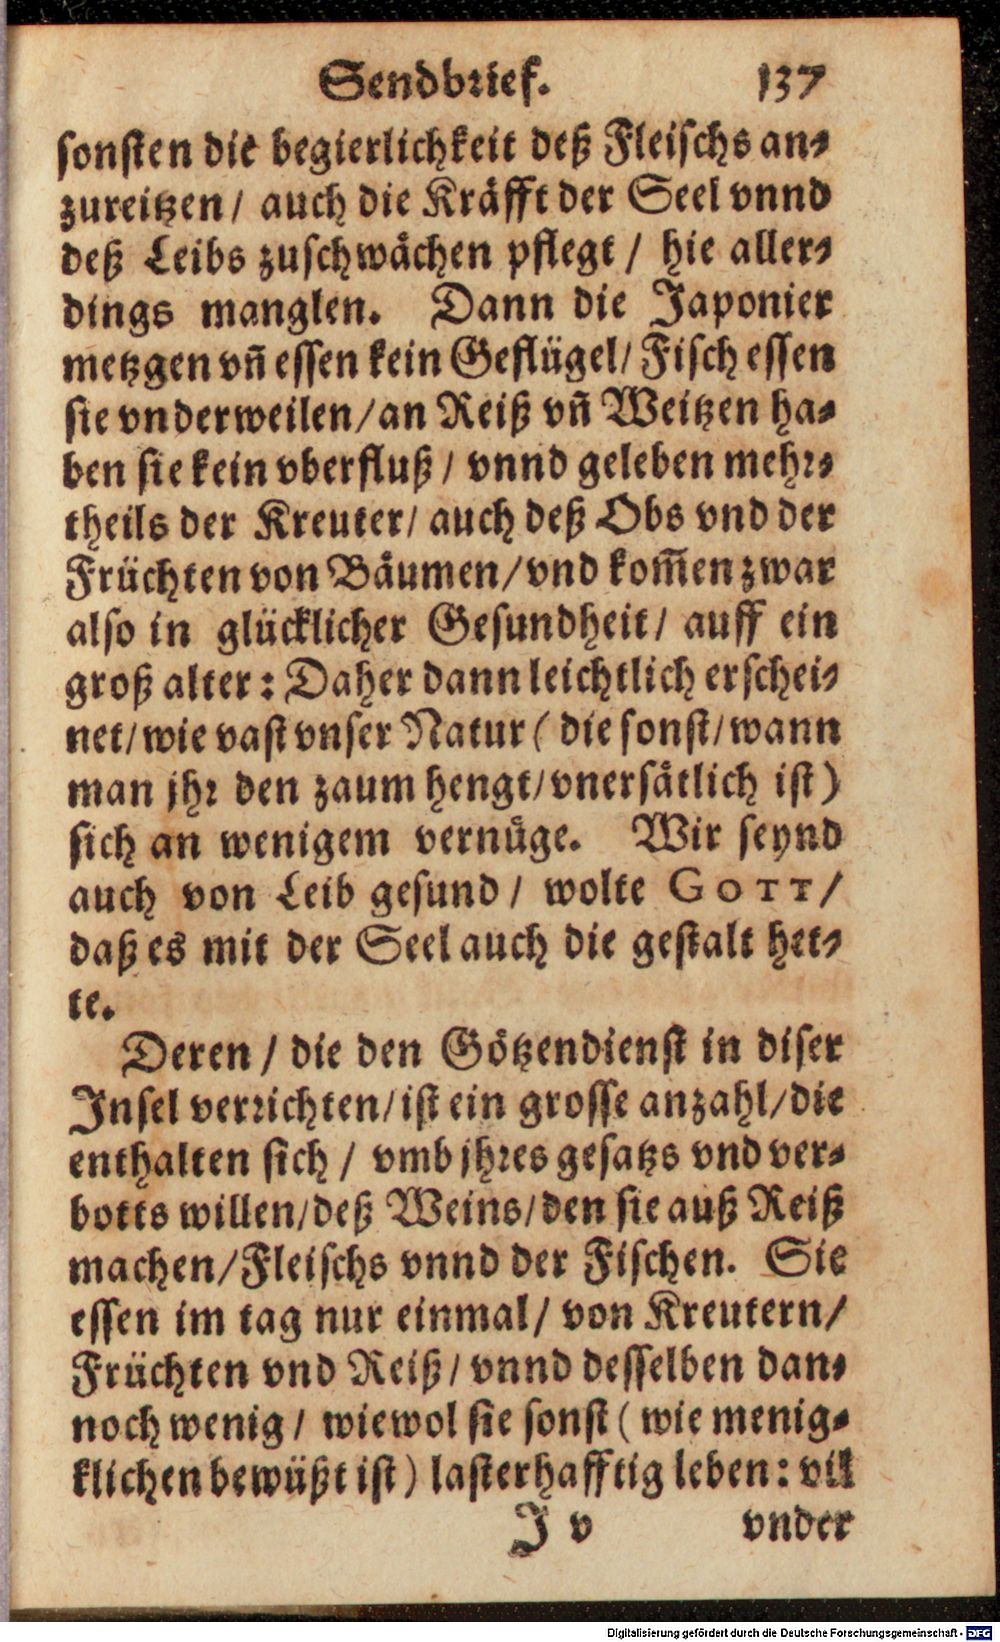 Sendbrief. 137
sonsten die begierlichkeit deß Fleischs an⸗
zureitzen / auch die Kräfft der Seel vnnd
deß Leibs zuschwächen pflegt / hie aller⸗
dings manglen. Dann die Japonier
metzgen vñ essen kein Geflügel / Fisch essen
sie vnderweilen / an Reiß vñ Weitzen ha⸗
ben sie kein vberfluß / vnnd geleben mehr⸗
theils der Kreuter / auch deß Obs vnd der
Früchten von Bäumen / vnd kom̃en zwar
also in glücklicher Gesundheit / auff ein
groß alter: Daher dann leichtlich erschei⸗
net / wie vast vnser Natur ( die sonst / wann
man jhr den zaum hengt / vnersätlich ist )
sich an wenigem vernüge. Wir seynd
auch von Leib gesund / wolte GOTT /
daß es mit der Seel auch die gestalt het⸗
te.
Deren / die den Götzendienst in diser
Insel verrichten / ist ein grosse anzahl / die
enthalten sich / vmb jhres gesatzs vnd ver⸗
botts willen / deß Weins / den sie auß Reiß
machen / Fleischs vnnd der Fischen. Sie
essen im tag nur einmal / von Kreutern /
Früchten vnd Reiß / vnnd desselben dan⸗
noch wenig / wiewol sie sonst ( wie menig⸗
klichen bewüßt ist ) lasterhafftig leben: vil
J v vnder
Digitalisierung gefördert durch die Deutsche Forschungsgemeinschaft - DFG